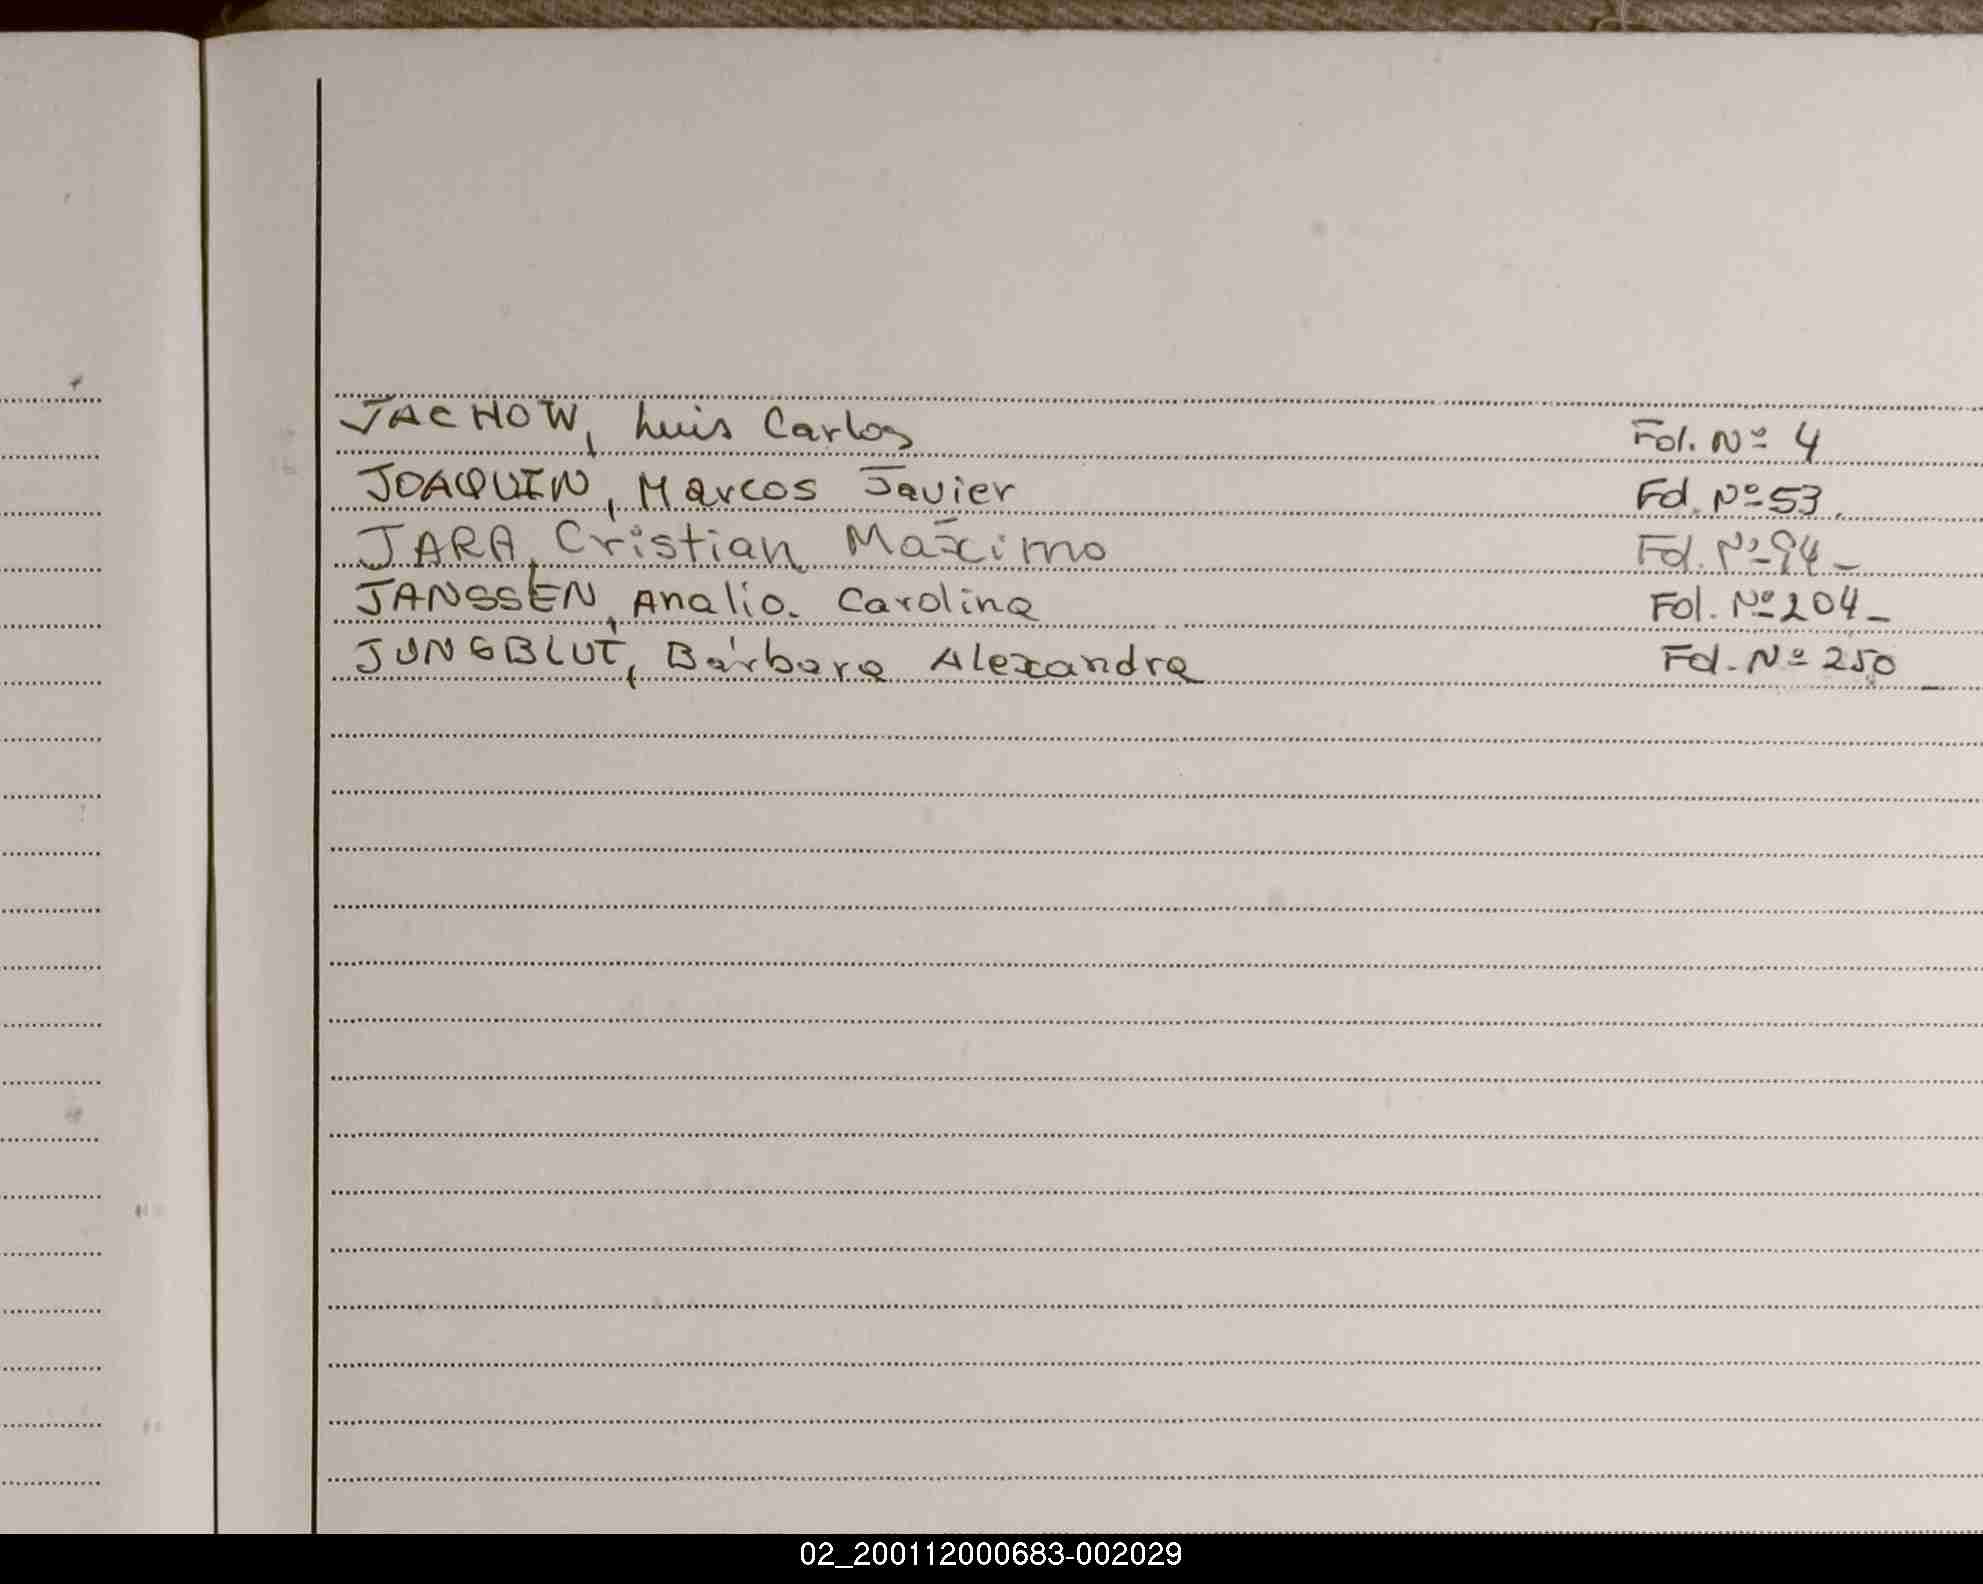 JACHOW, Luis Carlos Fol. Nº 4
JOAQUIN, Marcos Javier Fol. Nº 53.
JARA, Cristian Máximo Fol. Nº 94_
JANSSEN, Analia Carolina Fol. Nº 204_
JUNGBLUT, Bárbara Alexandra Fol. Nº 250_
02_200112000683-002029